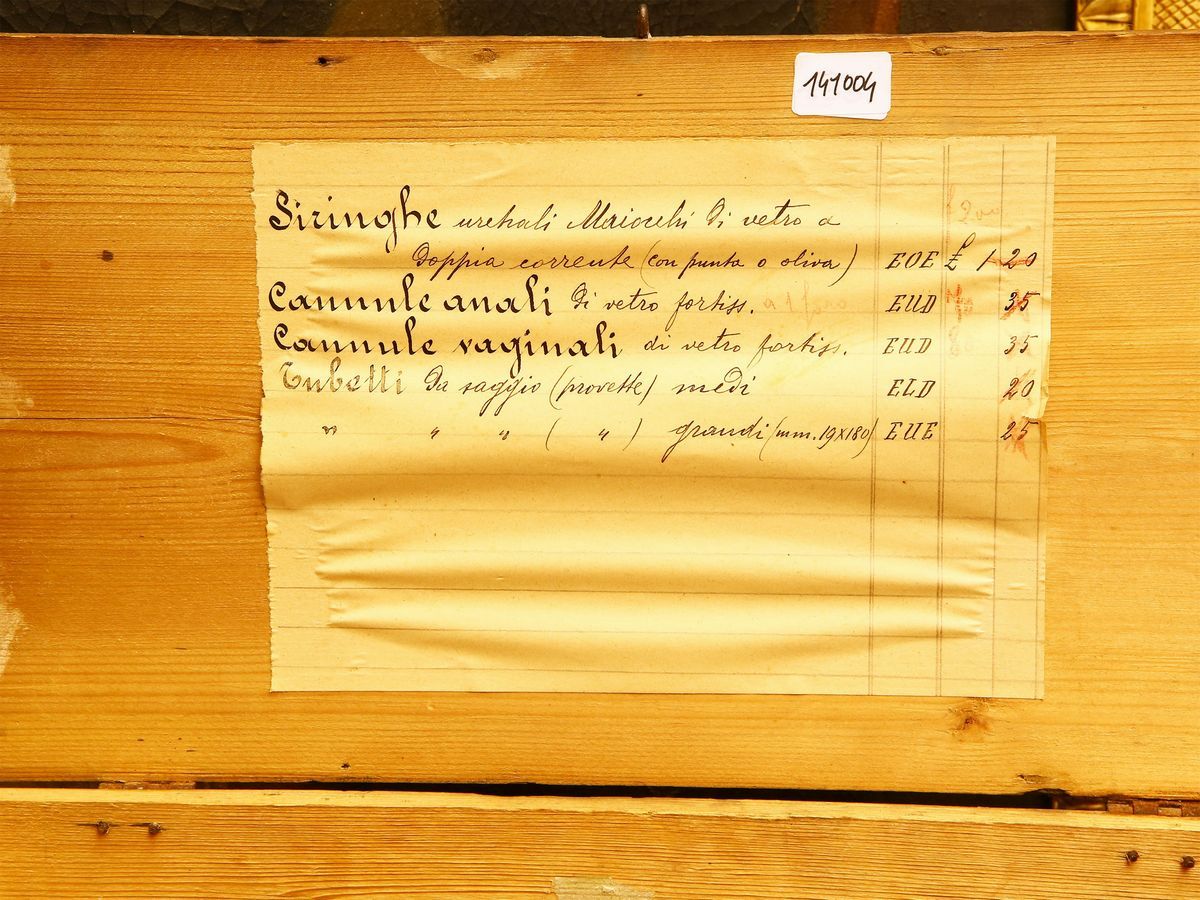 141004
Siringhe uretrali Maiocchi di vetro a
doppia corrente (con punta o oliva) EOE £ 1 20
Cannule anali di vetro fortiss. EUD 35
Cannule vaginali di vetro fortiss. EUD 35
Tubetti da saggio (provette) medi ELD 20
" " " ( " ) grandi (mm. 19x180) EUE 25